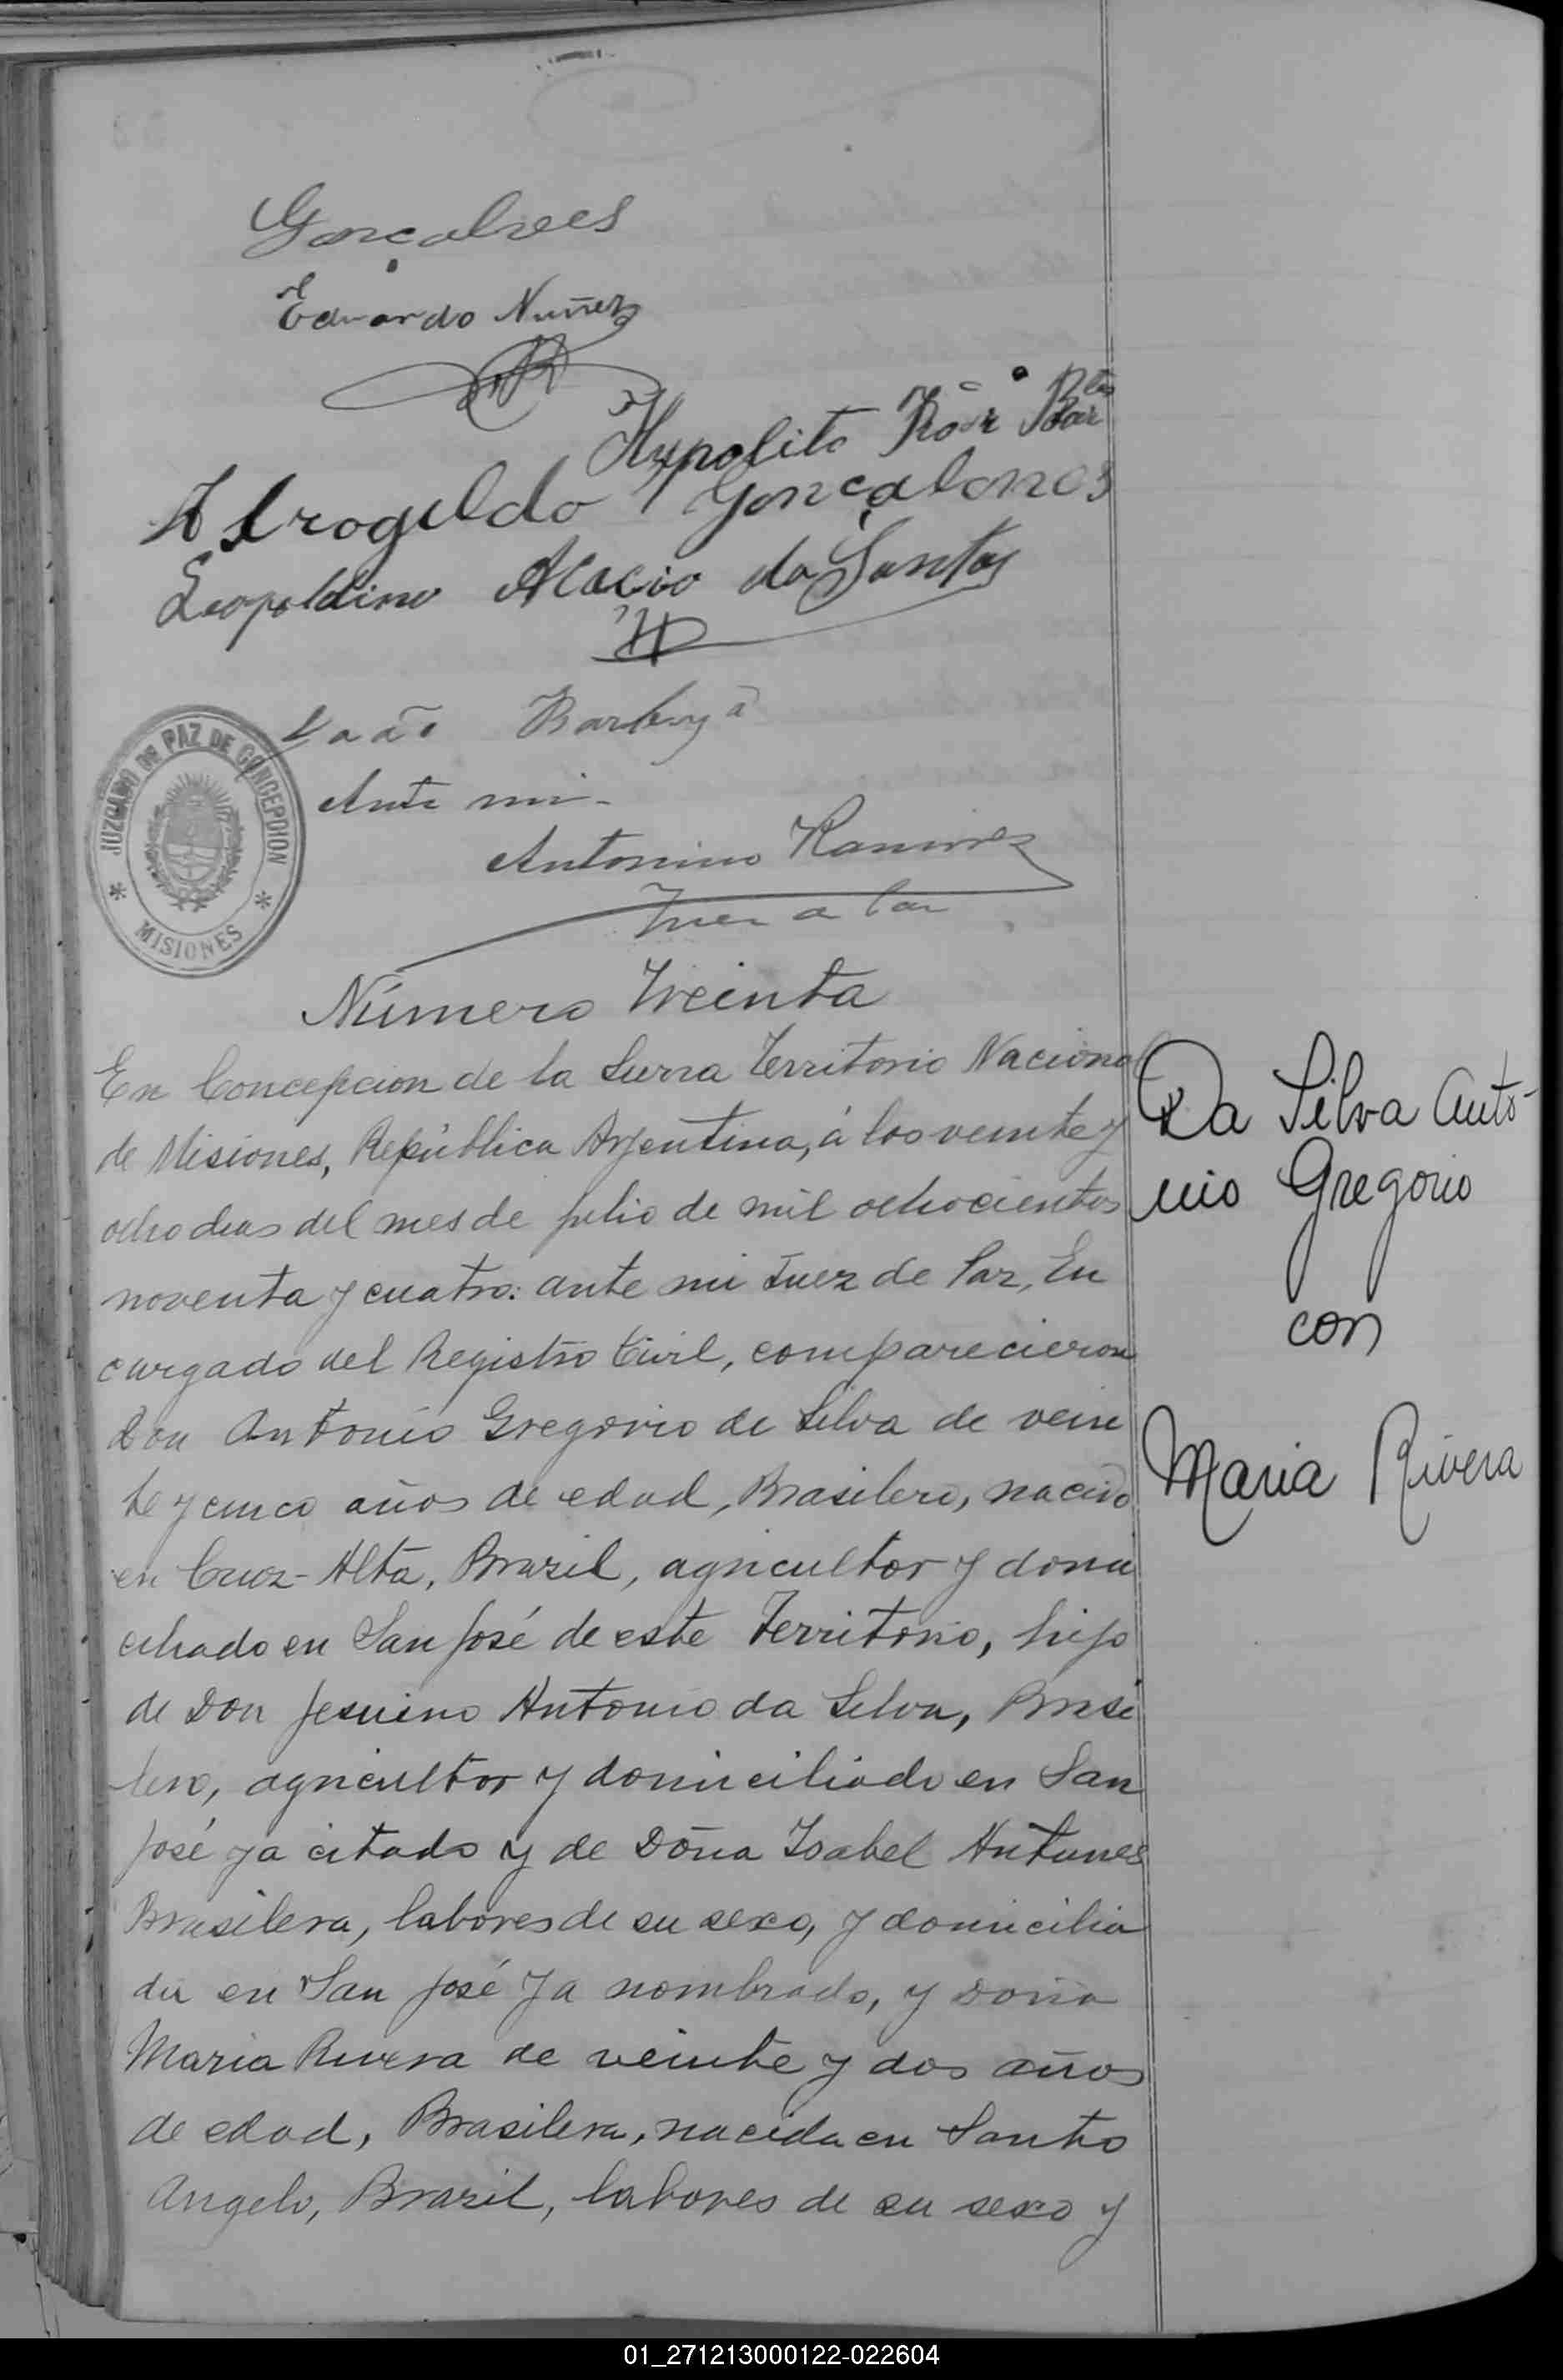 Gonçalves
Eduardo Nuñez
Hypolito
Astrogildo Gonçalves
Leopoldino Acacio do Santos
JUZGADO DE PAZ DE CONCEPCION
* MISIONES *
Ante mi-
Antonino Ramirez
Número Treinta
En Concepcion de la Sierra Territorio Nacional
de Misiones, República Argentina, á los veinte y
ocho dias del mes de julio de mil ochocientos
noventa y cuatro: ante mi Juez de Paz, En
cargado del Registro Civil, comparecieron
Don Antonio Gregorio de Silva de vein
te y cinco años de edad, Brasilero, nacido
en Cruz-Alta, Brazil, agricultor y domi
ciliado en San José de este Territorio, hijo
de Don Jesuino Antonio da Silva, Brasi
lero, agricultor y domiciliado en San
José ya citado y de Doña Isabel Antunes
Brasilera, labores de su sexo, y domicilia
da en San José ya nombrado, y Doña
Maria Rivera de veinte y dos años
de edad, Brasilera, nacida en Santo
Angelo, Brazil, labores de su sexo y
Da Silva Anto-
nio Gregorio
con
Maria Rivera
01_271213000122-022604